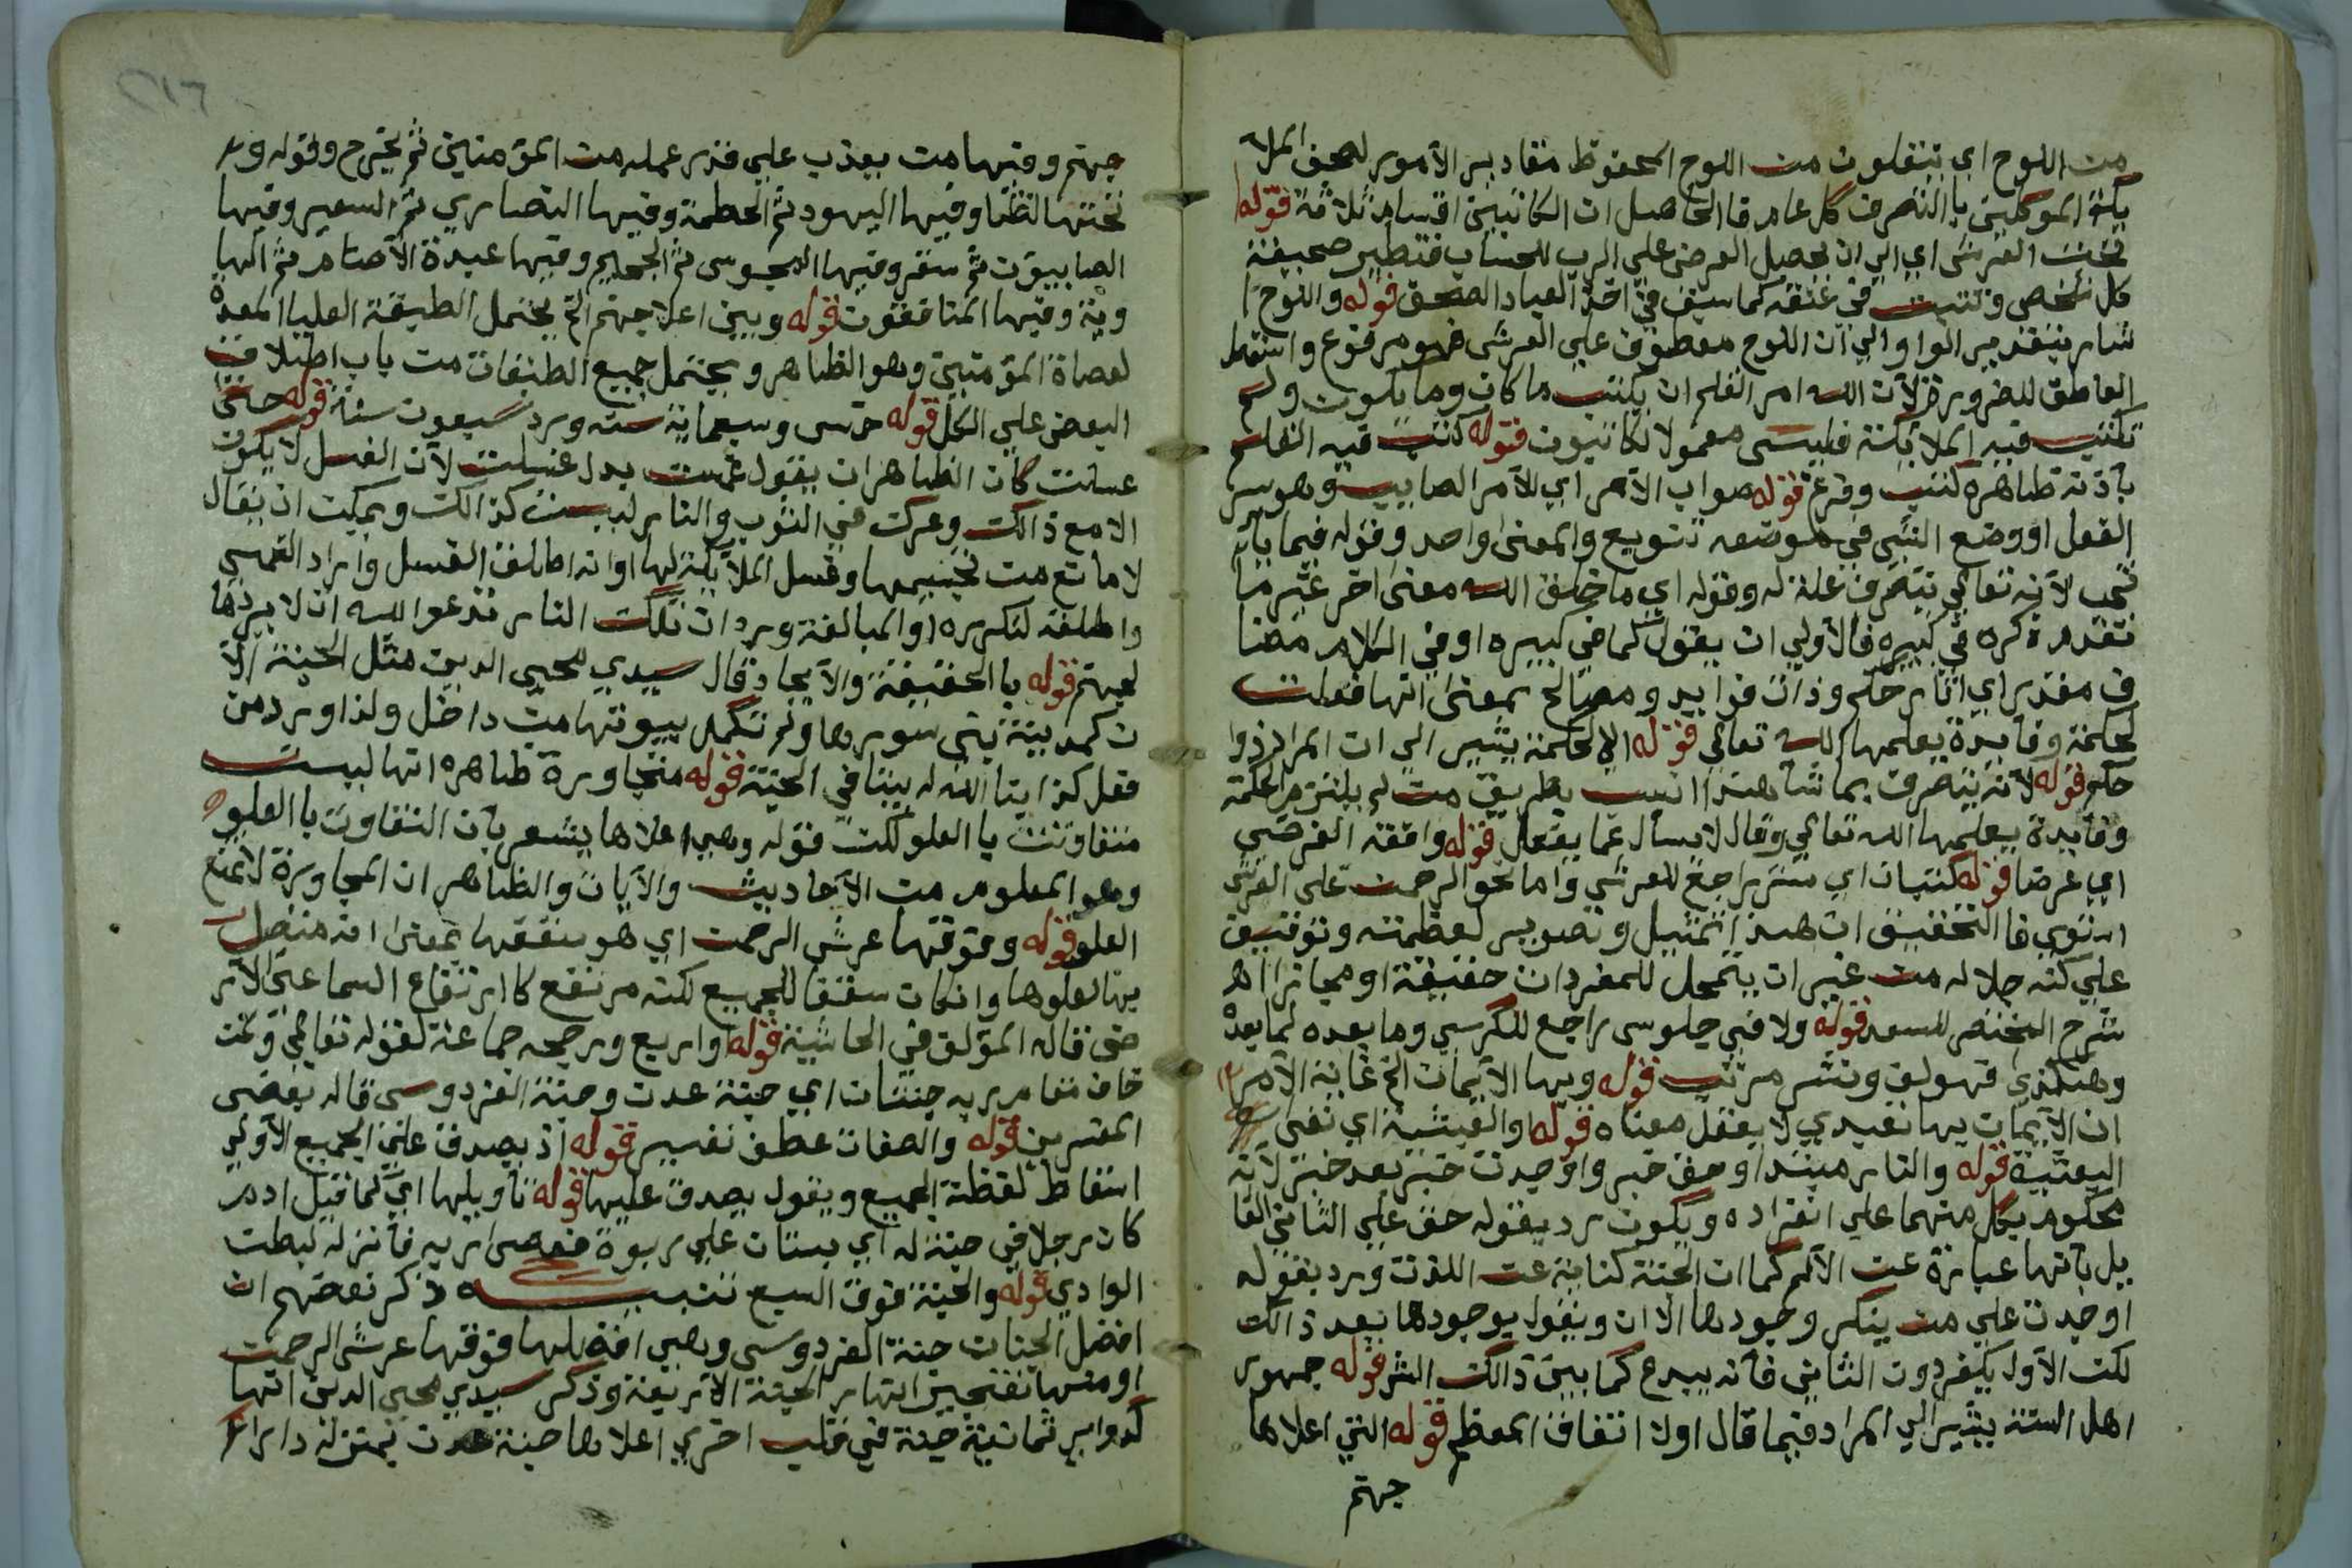 من اللوح اي ينقلون من اللوح المحفوظ مقادير الامور لصحف الملا
يكة الموكلين باالتصرف كل عام فاالحاصل ان الكاتبين اقسام ثلاثة قوله
تحت العرش اي الي ان يحصل العرض علي الرب للحساب فتطير صحيفة
كل شخص وتثبت في عنقه كما سبق في اخذ العباد الصحف قوله واللوح ا
شار بتقدير الواو الي ان اللوح معطوف علي العرش فهو مرفوع واسقط
العاطف للضرورة لان الله امر القلم ان يكتب ما كان وما يكون ولم
تكتب فيه الملايكة فليس معمولا لكاتبون قوله كتب فيه القلم
بأذنه ظاهره كتب وفرغ قوله صواب الامر اي للامر الصايب وهو سر
الفعل او وضع الشي في موضعه تنويع والمعني واحد وقوله فيما يأتي
تجب لانه تعالي علة له وقوله اي ما خلق الله معني اخر غير ما
تقدم ذكره في كبيره فالاولي ان يقول كما في كبيره او في الكلام مضا
ف مقدر اي اثار حكم وذات فوايد ومصالح بمعني انها فعلت
لحكمة وفايدة يعلمها الله تعالي قوله الا لحكمة يشير الي ان المراد ذوا
حكم قوله لانه يتصرف بما شا هذا انسب بطريق من لم يلتزم الحكمة
وفايدة يعلمها الله تعالي وقال لا يسأل عما يفعل قوله وافقه الفرضي
اي عرضا قوله كتبان اي ستر راجع للعرش واما نحو الرحمن علي العرش
استوي فاالتحقيق ان هذا تمثيل وتصوير لعظمته وتوقيف
علي كنه جلاله من غير ان يتمحل للمفردات حقيقة او مجازا اهـ
شرح المختصر للسعد قوله ولا في جلوس راجع للكرسي وما بعده لما بعده
وهكذي فهو لف ونشر مرتب قوله وبها الايمان الخ غاية الامر
ان الايمان بها تعبدي لا يعقل معناه قوله والعبثية اي نفي
العبثية قوله والنار مبتدا وحق خبر واوجدت خبر بعد خبر لانه
محكوم بكل منهما علي انفراده ويكون رد بقوله حق علي الثاني القا
يل بأنها عبارة عن الالم كما ان الجنة كناية عن اللذت ورد بقوله
اوجدت علي من ينكر وجودها الان ويقول بوجودها بعد ذالك
لكن الاول يكفر دون الثاني فأنه يبدع كما بين ذالك الشر قوله جمهور
اهل السنة يشير الي المراد فيما قال اولا اتفاق المعظم قوله التي اعلاها
جهنم
٢١٦
جهنم وفيها من يعذب علي قدر عمله من المؤمنين ثم يخرج وقوله و
تحتها لظا وفيها اليهود ثم الحطمة وفيها النصاري ثم السعير وفيها
الصابيون ثم سقر وفيها المجوس ثم الجحيم وفيها عبدة الاصنام ثم الها
وية وفيها المنافقون قوله وبين اعلا جهنم الخ يحتمل الطبقة العليا المعدة
لعصاة المؤمنين وهو الظاهر ويحتمل جميع الطبقات من باب اطلاق
البعض علي الكل قوله خمس وسبعماية سنه ورد سبعون سنة قوله حتي
غسلت كان الظاهر ان يقول غمست بدل غسلت لان الغسل لا يكون
الا مع ذالك وعرك في الثوب والنار ليست كذالك ويمكن ان يقال
لا مانع من تجسيمها وغسل الملايكة لها او انه اطلق الغسل واراد الغمس
واطلقه لتكرره او المبالغة ورد ان تلك النار تدعوا الله ان لا يردها
لجهنم قوله باالحقيقة والايجاد قال سيدي محيي الدين مثل الجنة الا
ن كمدينة بني سورها ولم تكمل بيوتها من داخل ولذا ورد من
فعل كذا بنا الله له بيتا في الجنة قوله متجاورة ظاهره انها ليست
متفاوتت باالعلو لكن قوله وهي اعلاها يشعر بأن التفاوت باالعلو
وهو المعلوم من الاحاديث والايات والظاهر ان المجاورة لا تمنع
العلو قوله وفوقها عرش الرحمن اي هو سقفها بمعني انه متصل
بها لعلوها وان كان سقفا للجميع لكنه مرتفع كارتفاع السما عن الار
ض قاله المؤلف في الحاشية قوله واربع ورجحه جماعة لقوله تعالي ولمن
خاف مقام ربه جنتان اي جنة عدن وجنة الفردوس قاله بعض
المفسرين قوله والصفات عطف تفسير قوله اذ يصدق علي الجميع الاولي
اسقاط لفظة الجميع ويقول يصدق عليها قوله تأويلها اي كما قيل ادم
كان رجلا في جنة له اي بستان علي ربوة فعصي ربه فأنزله لبطن
الوادي قوله والجنة فوق السبع تنبيه ذكر بعضهم ان
افضل الجنات جنة الفردوس وهي فوقها عرش الرحمن
ومنها تنفجر انهار الجنة الاربعة وذكر سيدي محيي الدين انها
كدواير ثمانية جنة في قلب اخري اعلاها جنة عدن بمنزلة دار